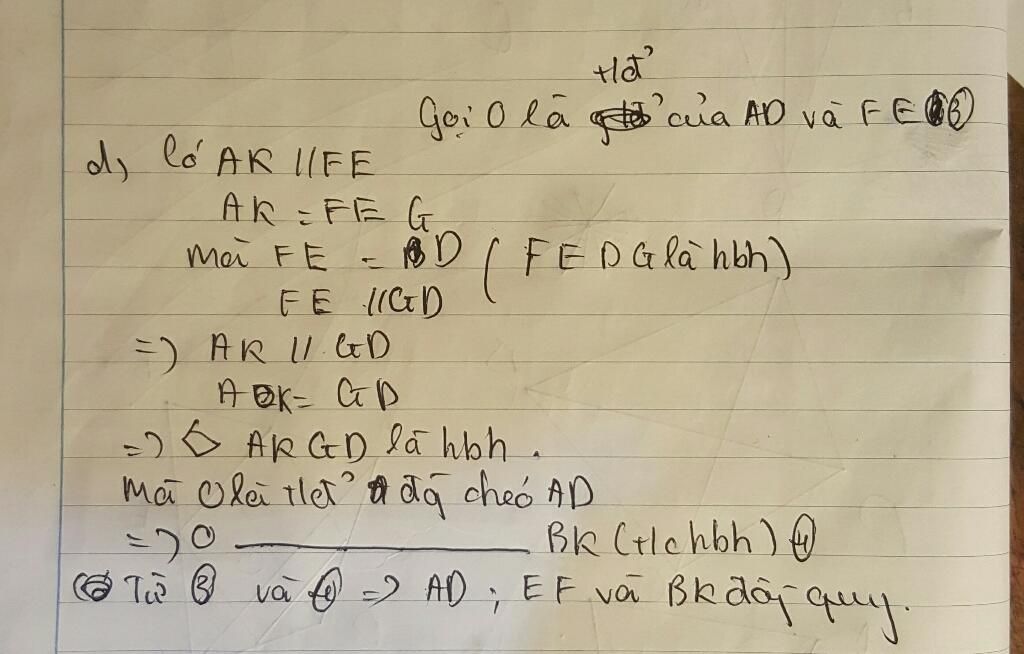 tđ'
Gọi O là của AD và FE ③
d, Có AK // FE
AK = FE G
Mà FE = D ( FEDG là hbh)
FE // GD
=> AK // GD
AK = GD
=> AKGD là hbh.
Mà O là tđ' đg chéo AD
=> O ——— BK (t/c hbh) ④
Từ ③ và ④ => AD ; EF và BK đồg quy.